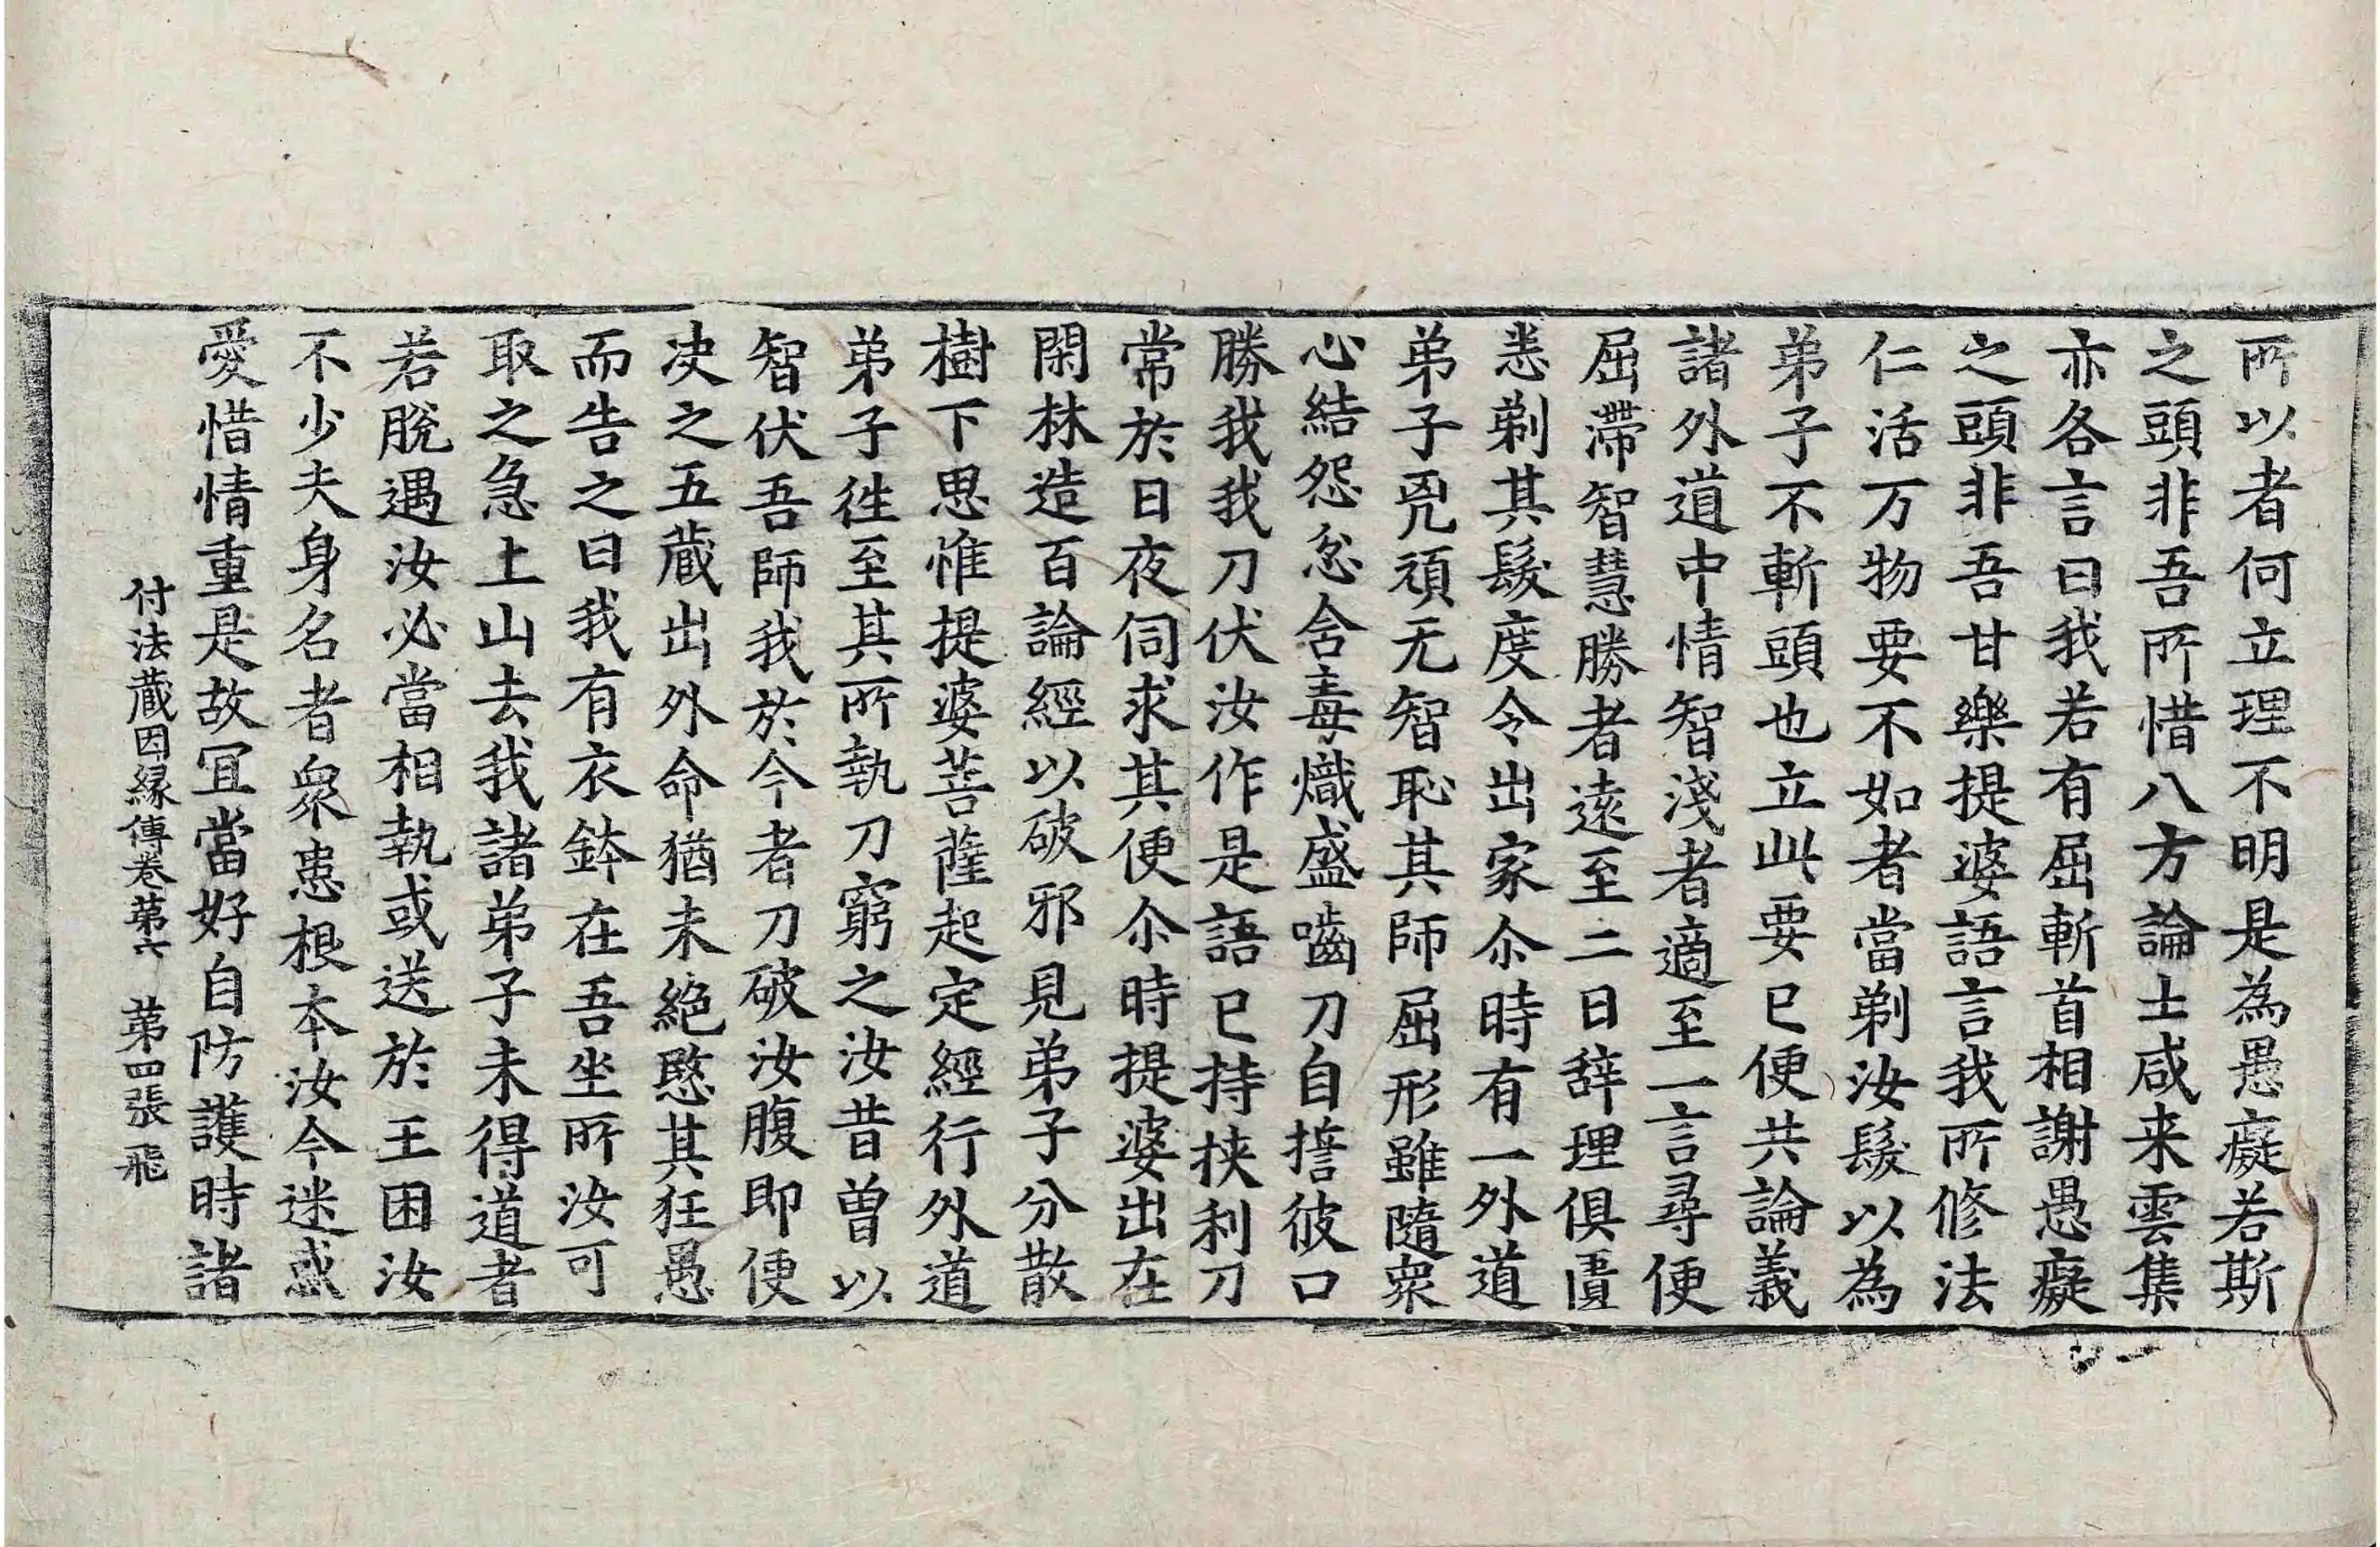 所以者何立理不明是為愚癡若斯
之頭非吾所惜八方論士咸来雲集
亦各言曰我若有屈斬首相謝愚癡
之頭非吾甘樂提婆語言我所修法
仁活万物要不如者當剃汝髮以為
弟子不斬頭也立此要已便共論義
諸外道中情智淺者適至一言尋便
屈滯智慧勝者遠至二日辞理俱匱
悉剃其髮度令出家尒時有一外道
弟子兇頑无智恥其師屈形雖隨衆
心結怨忿含毒熾盛嚙刀自誓彼口
勝我我刀伏汝作是語已持挾利刀
常於日夜伺求其便尒時提婆出在
閑林造百論經以破邪見弟子分散
樹下思惟提婆菩薩起定經行外道
弟子徃至其所執刀窮之汝昔曽以
智伏吾師我於今者刀破汝腹即便
决之五蔵出外命猶未絶愍其狂愚
而告之曰我有衣鉢在吾坐所汝可
取之急上山去我諸弟子未得道者
若脫遇汝必當相執或送於王困汝
不少夫身名者衆患根本汝今迷惑
愛惜情重是故冝當好自防護時諸
付法蔵因縁傳卷第六　第四張　飛